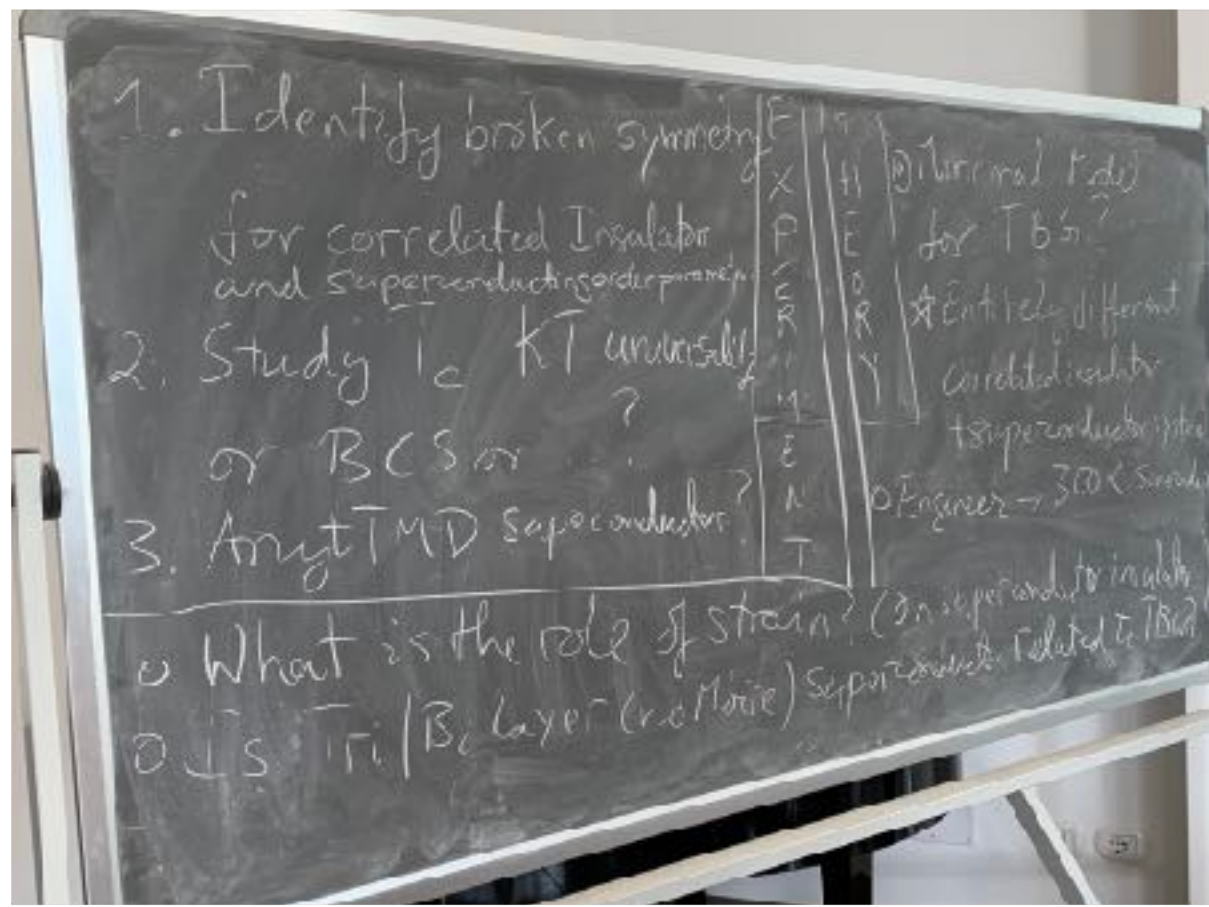 1. Identify broken symmetry
for correlated Insulator
and superconducting order
2. Study Tc KT universality
or BCS or ?
3. TMD Superconductor?
EXPERIMENT
THEORY
for
☆ Entirely different
correlated insulator
+ superconductor
o Engineer → 300K
o What is the role of strain? (on superconductor insulator
o Is Tri/Bi Layer (no Moire) Superconduct. related to